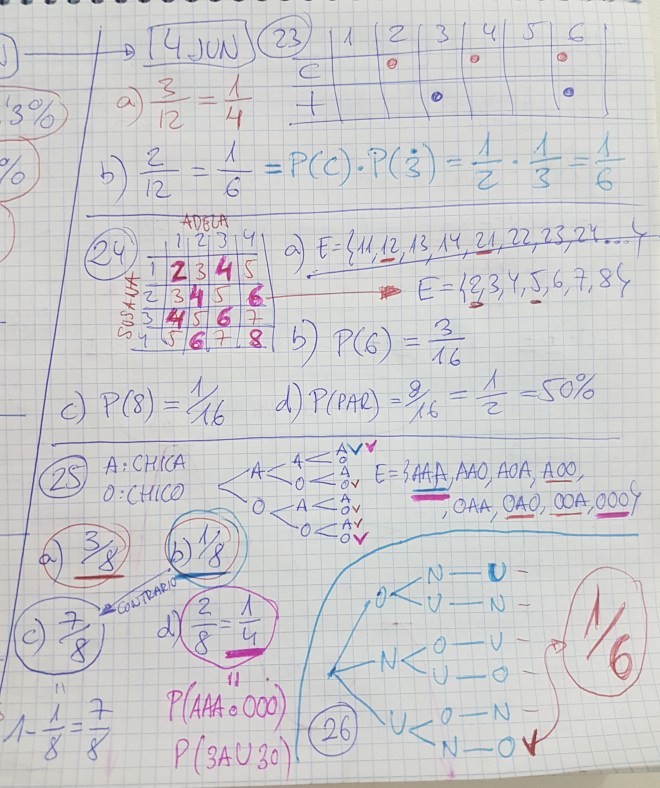 4 JUN
23 1 2 3 4 5 6
C
+
a) 3/12 = 1/4
3%
%
b) 2/12 = 1/6 = P(C)·P(3̇) = 1/2 · 1/3 = 1/6
24
ADELA
1 2 3 4
SUSANA
1 2 3 4 5
2 3 4 5 6
3 4 5 6 7
4 5 6 7 8
a) E={11,12,13,14,21,22,23,24...}
E={2,3,4,5,6,7,8}
b) P(6) = 3/16
c) P(8) = 1/16 d) P(PAR) = 8/16 = 1/2 = 50%
25 A: CHICA
O: CHICO
A A A
O
O A
O
O A A
O
O A
O
E={AAA, AAO, AOA, AOO,
, OAA, OAO, OOA, OOO}
a) 3/8 b) 1/8
CONTRARIO
c) 7/8 d) 2/8 = 1/4
=
1 - 1/8 = 7/8
=
P(AAA o OOO)
P(3A U 3O)
26
O N — U -
U — N -
N O — U -
U — O -
U O — N -
N — O
1/6